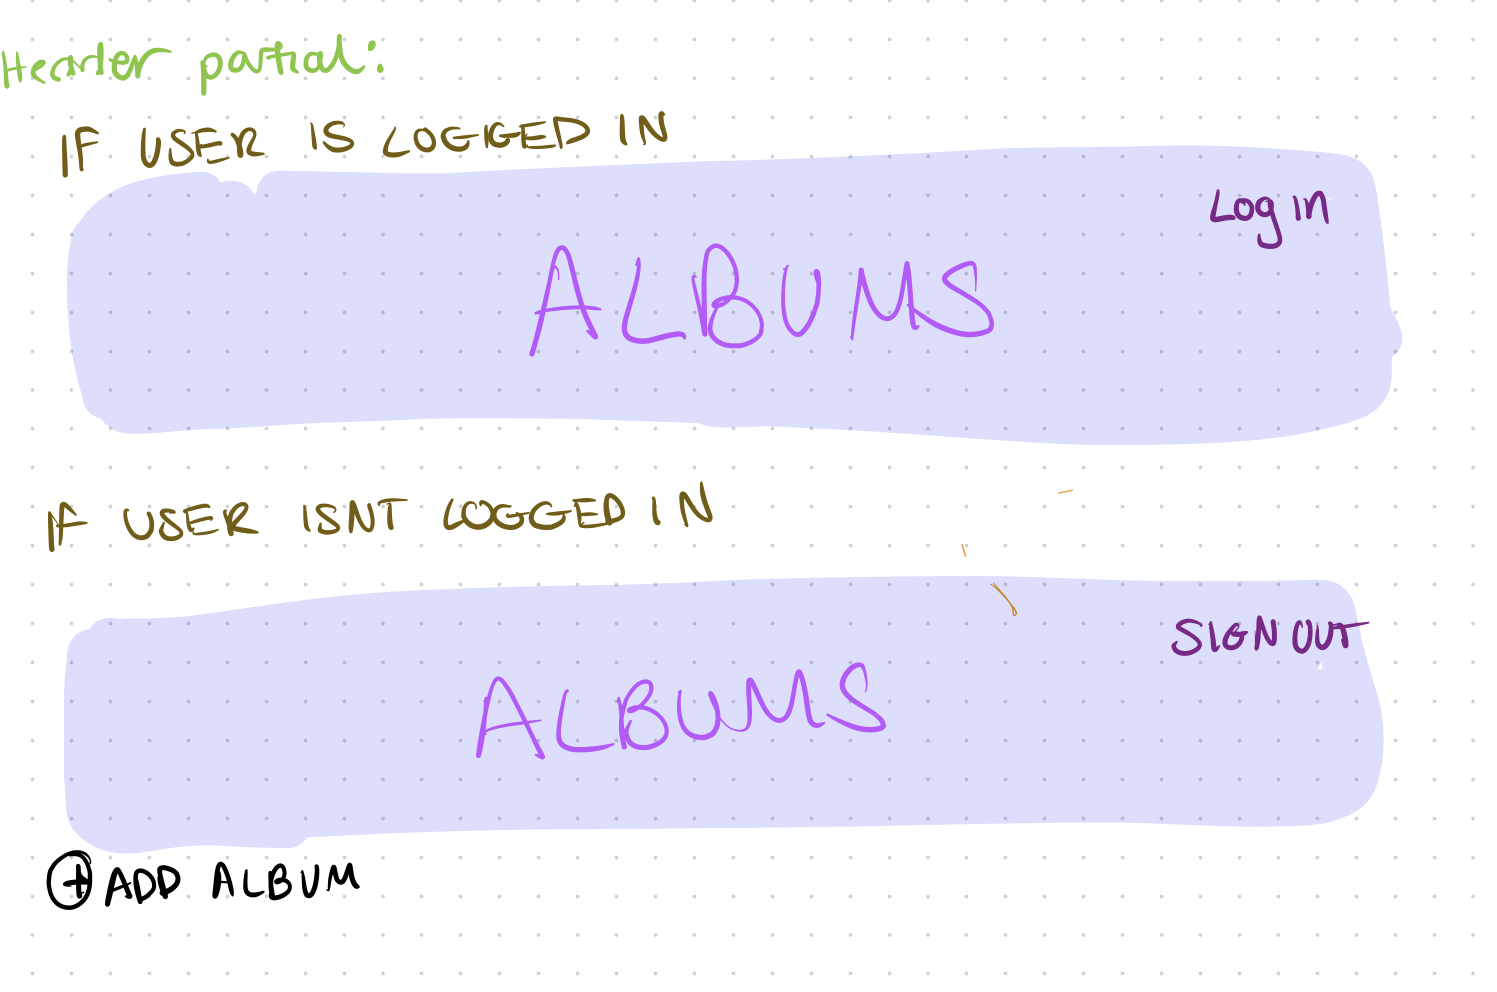 Header partial:
IF USER IS LOGGED IN
Log in
ALBUMS
IF USER ISNT LOGGED IN
SIGN OUT
ALBUMS
+ ADD ALBUM